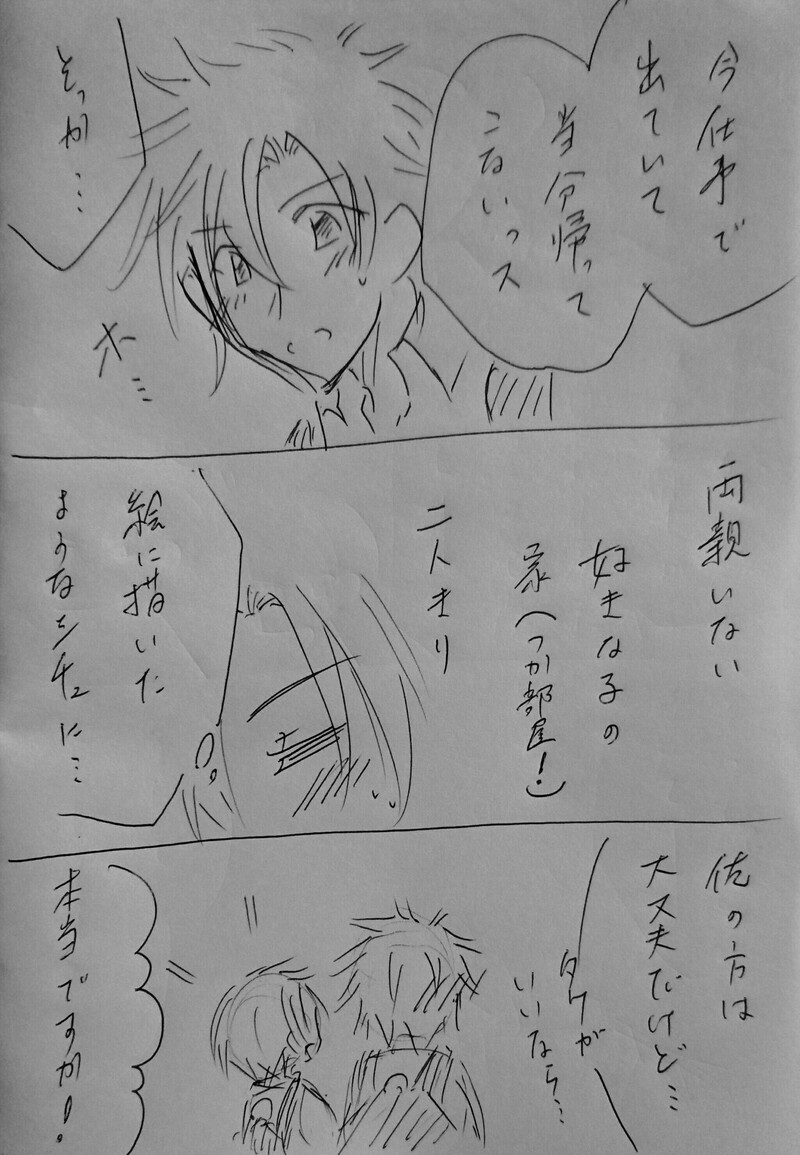 今仕事で
出ていて
当分帰って
こないっス
そっか…
ホ…
両親いない
好きな子の
家(つか部屋!)
二人きり
絵に描いた
ようなシチュに…
俺の方は
大丈夫だけど…
タケが
いいなら…
本当ですか!